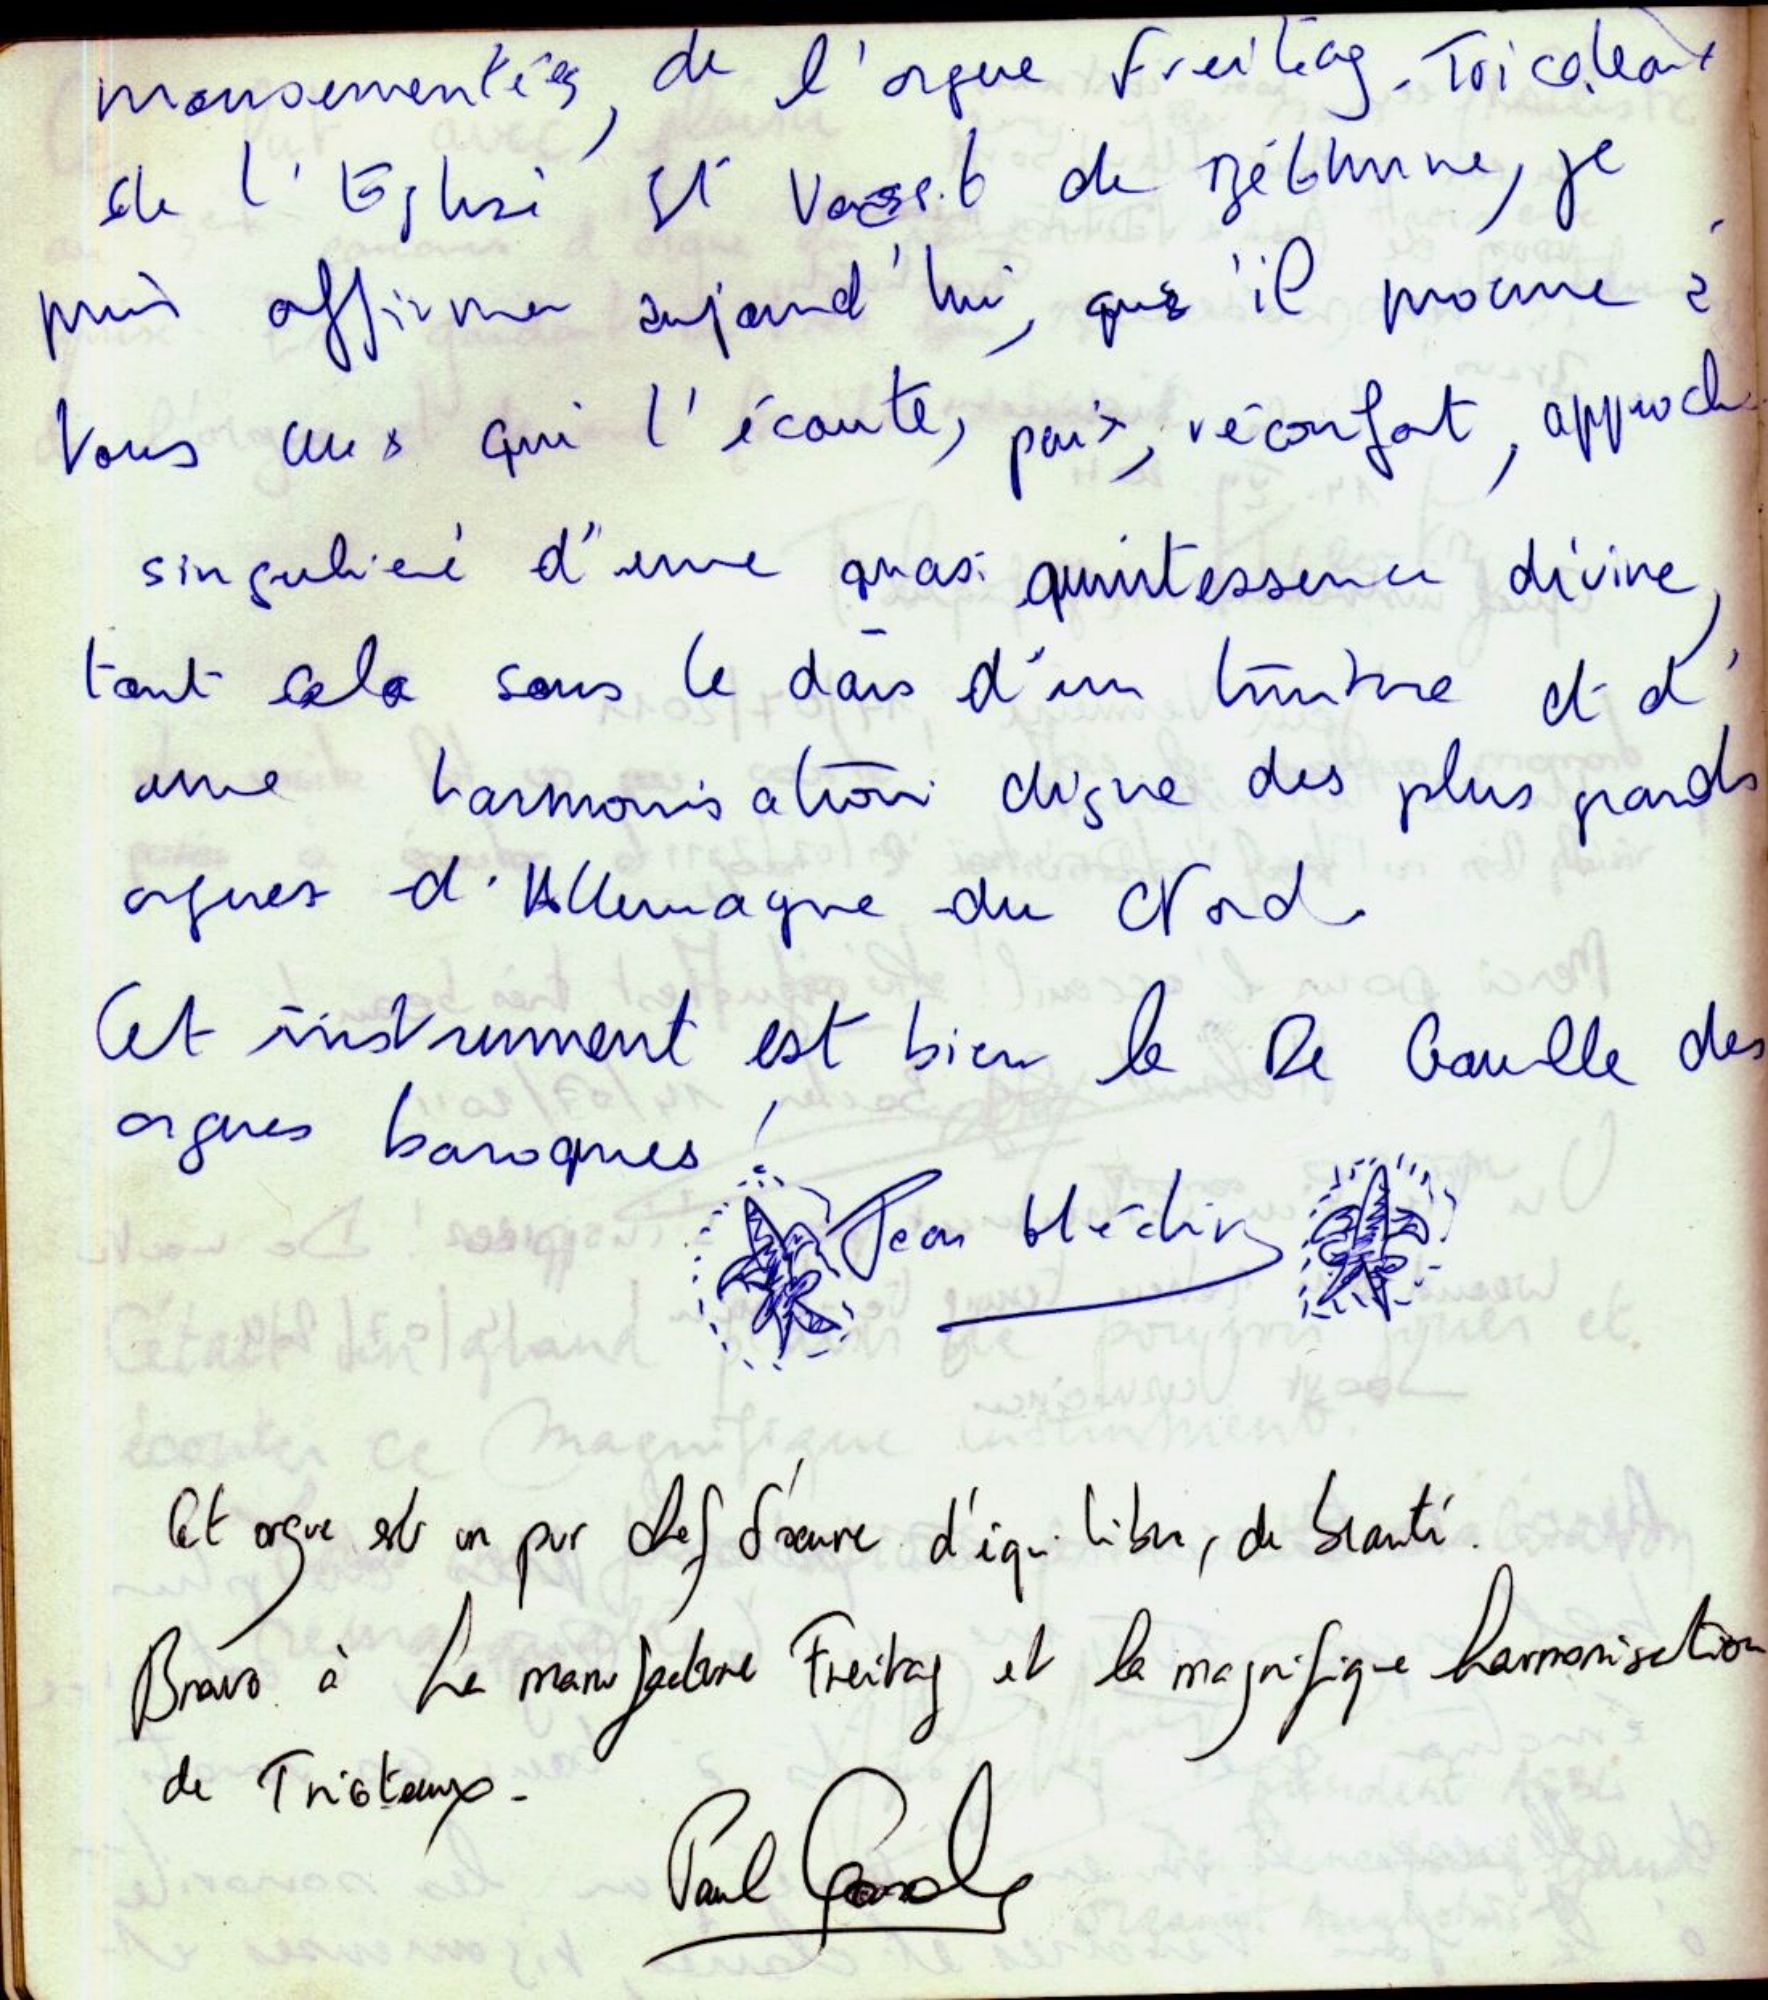 mouvementées, de l'orgue Freitag-Tricoteaux
de l'Eglise St Vaast de Béthune, je
puis affirmer aujourd'hui, qu'il procure à
tous ceux qui l'écoute, paix, réconfort, approche
singulière d'une quasi quintessence divine,
tout cela sous le dais d'un timbre et d'
une harmonisation digne des plus grands
orgues d'Allemagne du Nord.
Cet instrument est bien le De Gaulle des
orgues baroques !
Jean
Cet orgue est un pur chef d'œuvre d'équilibre, de beauté.
Bravo à La manufacture Freitag et la magnifique harmonisation
de Tricoteaux.
Paul